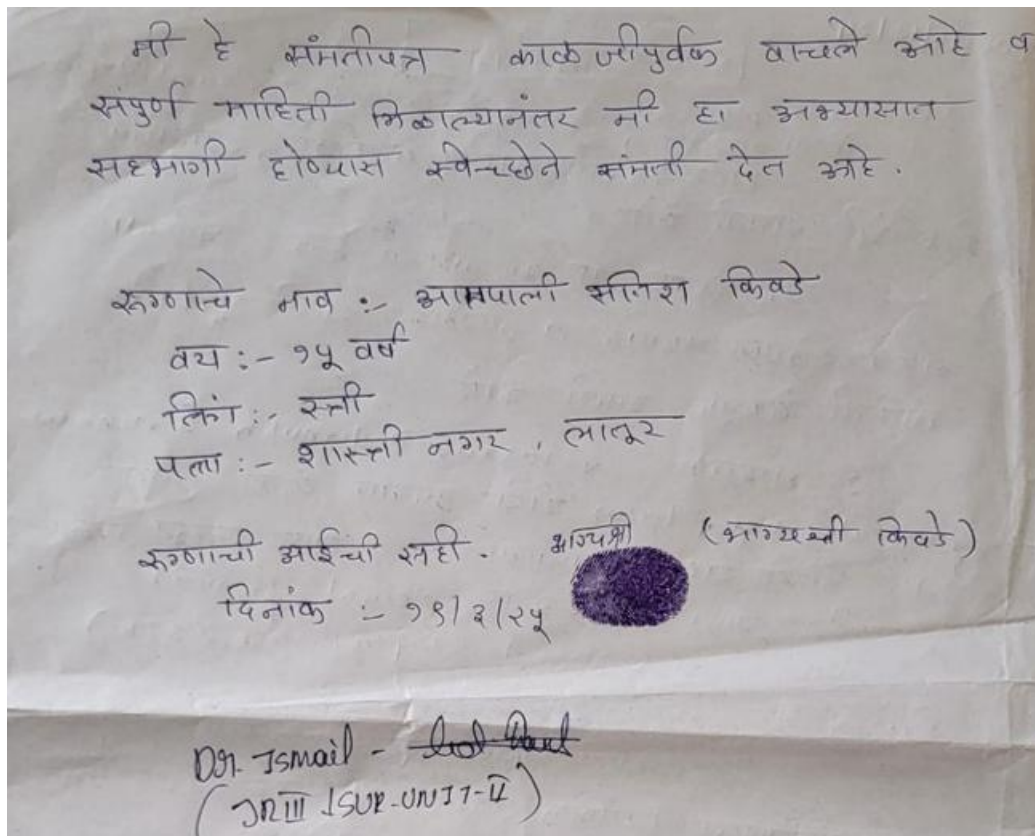 मी हे संमतीपत्र काळजीपुर्वक वाचले आहे व
संपुर्ण माहिती मिळाल्यानंतर मी हा अभ्यासात
सहभागी होण्यास स्वेच्छेने संमती देत आहे.
रुग्णाचे नाव :- आम्रपाली सतिश किवडे
वय :- १५ वर्ष
लिंग :- स्त्री
पत्ता :- शास्त्री नगर, लातूर
रुग्णाची आईची सही - भाग्यश्री (भाग्यश्री किवडे)
दिनांक :- १९/३/२५
Dr. Ismail -
(JRIII SUR-UNIT-II)